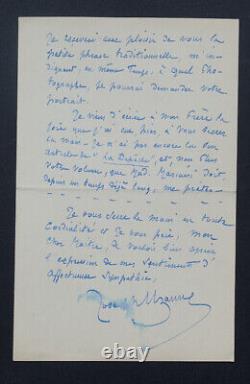 Je recevrai avec plaisir de vous la
petite phrase traditionnelle m'in
diquant, en même temps, à quel Pho-
tographe je pourrai demander votre
portrait.
Je viens d'écrire à mon Frère la
joie que j'ai eue hier à vous serrer
la main. Je n'ai pas encore lu son
article de "La Dépêche", et non plus
votre volume, que Mad. Mariani doit,
depuis un temps déjà long, me prêter.
Je vous serre la main en toute
Cordialité et je vous prie, mon
Cher Maître, de vouloir bien agréer
l'expression de mes Sentiments d'
affectueuse Sympathie,
Joseph Uzanne